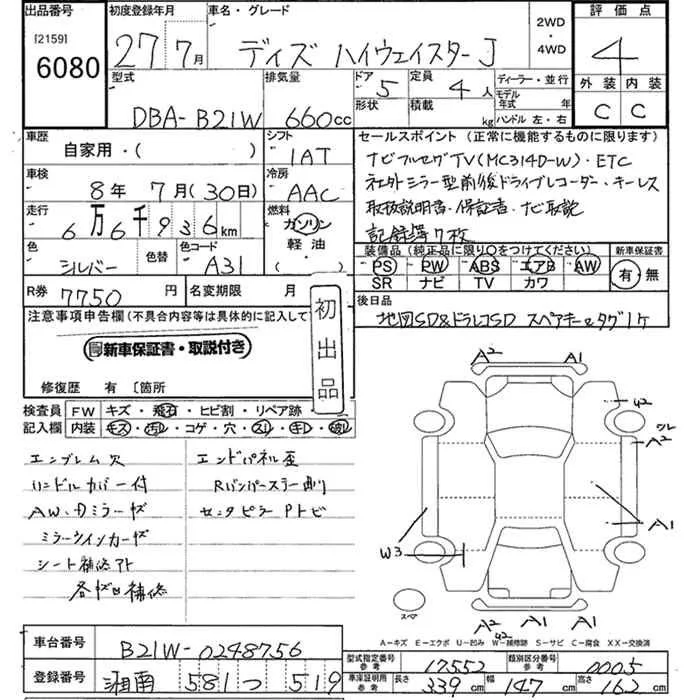 出品番号
[2159]
6080
初度登録年月
27 7月
車名・グレード
デイズ ハイウェイスターJ
2WD
・
4WD
評価点
4
外装 内装
C C
型式
DBA-B21W
排気量
660cc
ドア 5
形状
定員 4人
積載 kg
ディーラー・並行
モデル
年式 年
ハンドル 左・右
車歴
自家用・( )
シフト
IAT
車検
8年 7月(30日)
冷房
AAC
走行
6万6千936km
燃料
ガソリン
軽油
( )
色
シルバー
色替
色コード
A31
セールスポイント (正常に機能するものに限ります)
ナビフルセグTV(MC314D-W)・ETC
社外ミラー型前後ドライブレコーダー・キーレス
取扱説明書・保証書・ナビ取説
記録簿7枚
装備品(純正品に限り○をつけてください)
PS PW ABS エアB AW
SR ナビ TV カワ
新車保証書
有・無
R券 7750円
名変期限 月
後日品
地図SD&ドラレコSD スペアキー&タグ1ケ
注意事項申告欄(不具合内容等は具体的に記入して
新車保証書・取説付き
修復歴 有 〔箇所
初出品
検査員 FW キズ・飛石・ヒビ割・リペア跡・
記入欄 内装 キズ・汚レ・コゲ・穴・スレ・キレ・破レ
エンブレム欠
ハンドルカバー付
AW・Dミラーキズ
ミラーウインカーキズ
シート補修アト
各キズ凹補修
エンドパネル歪
Rバンパースラー削リ
センタピラーPトビ
A2 A1
42
ツレ
A2
A1
W3
スペア
A2 42 A1 A1
A-キズ E-エクボ U-凹み W-補修跡 S-サビ C-腐食 XX-交換済
車台番号 B21W-0248756
登録番号 湘南 581 つ 519
型式指定番号
参考
17552
類別区分番号
参考
0005
車庫証明用
参考
長さ 339cm 幅 147cm 高さ 162cm